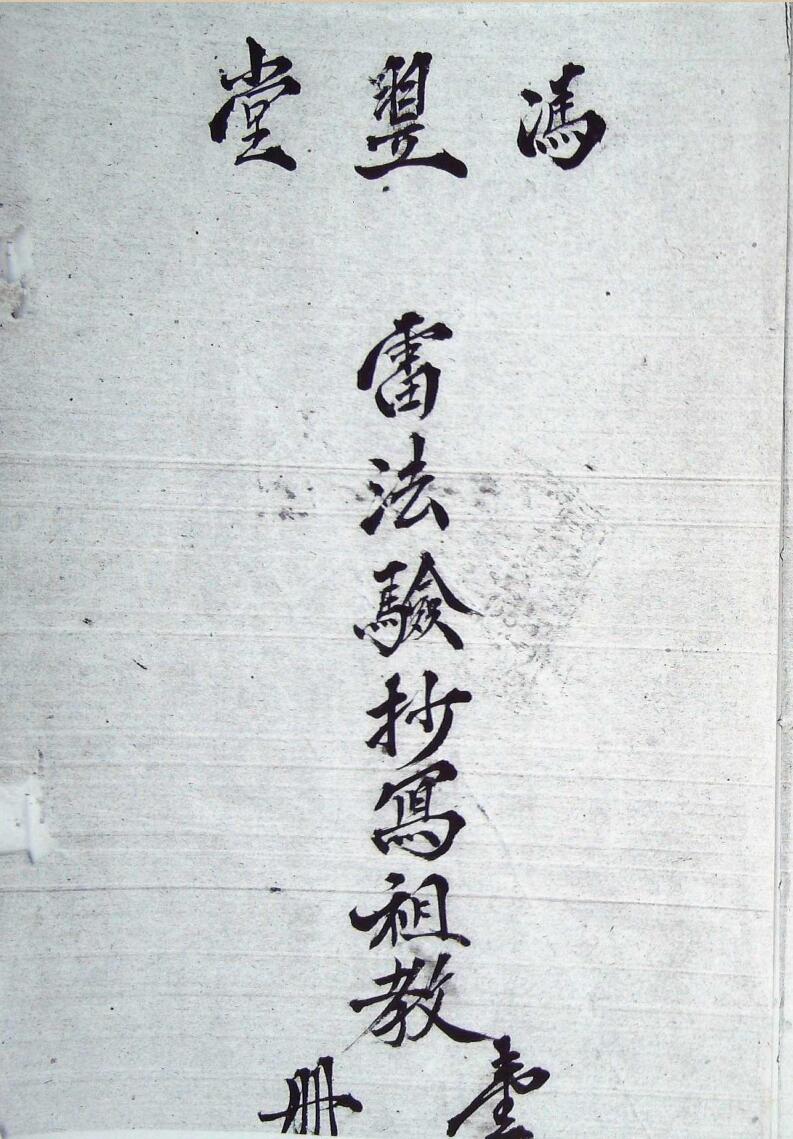 馮翌堂
雷法驗抄寫祖教
壹冊